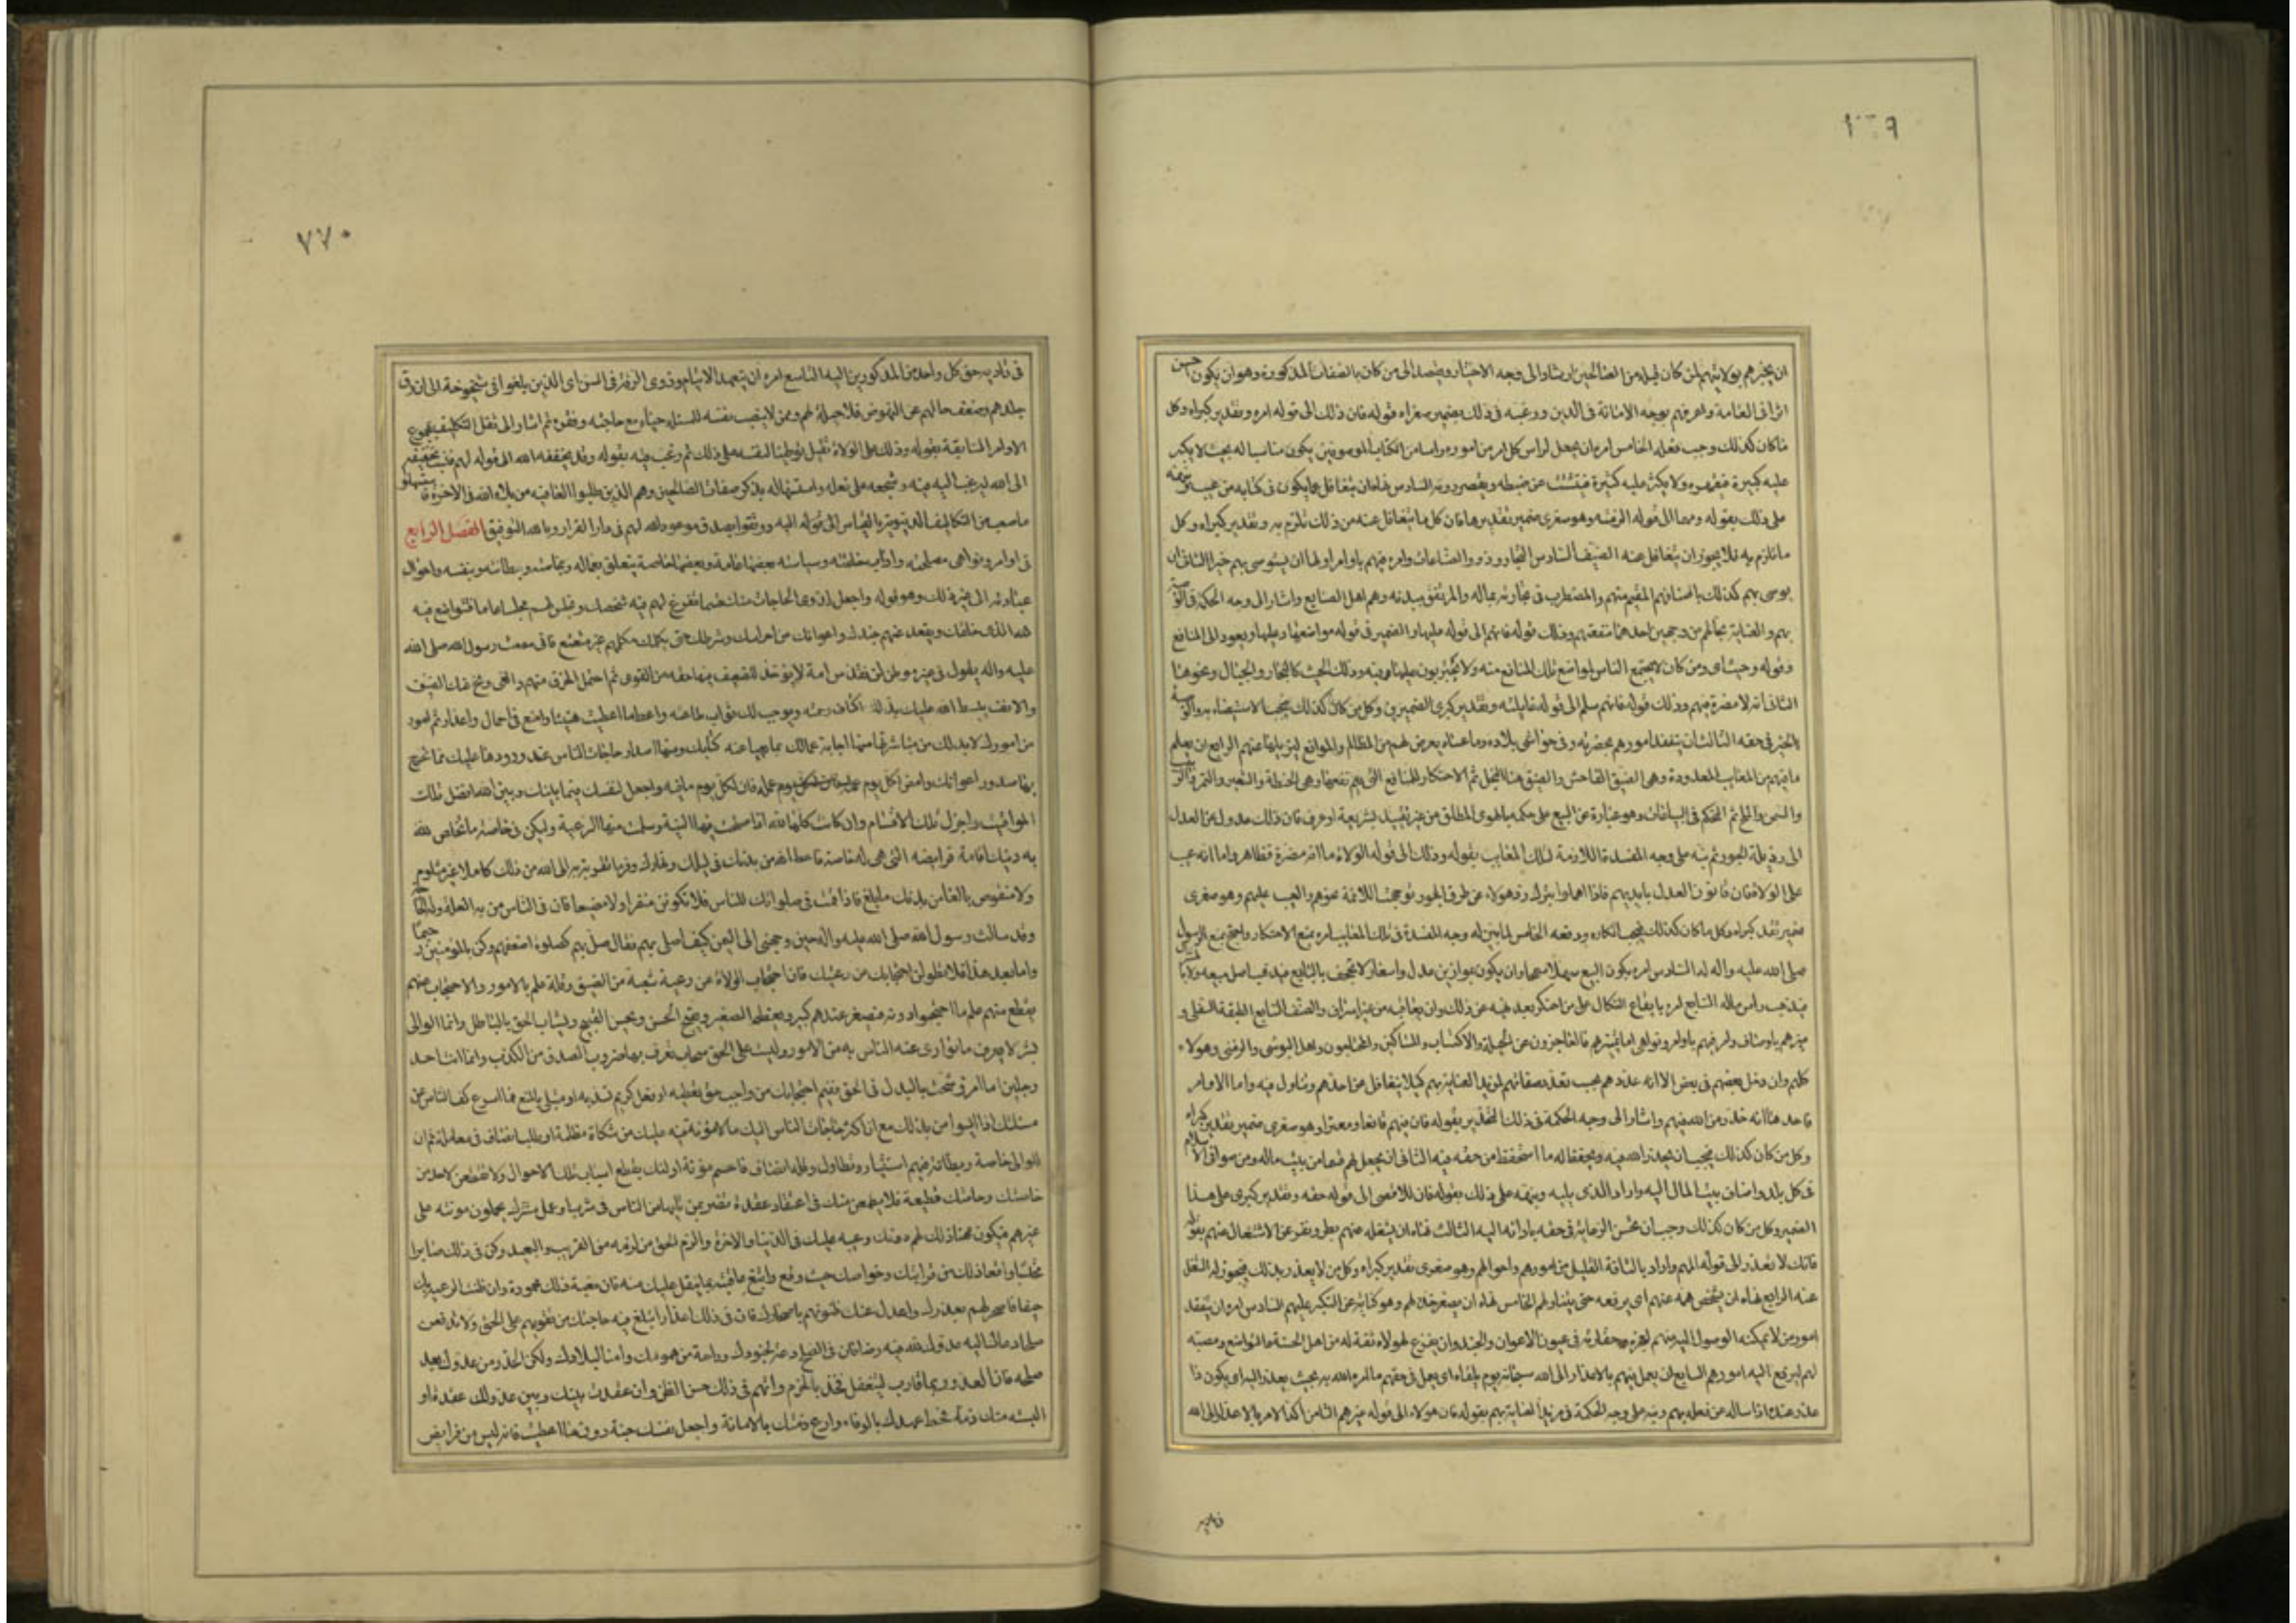 ان يختبرهم بولايتهم لمن كان قبله من الصالحين ارشادا الى وجه الاختبار ويقصد الى من كان بالصفات المذكورة وهو ان يكون حسن
اثرا في العامة واعرفهم بوجه الامانة في الدين ورغبه في ذلك بضمير صغراه قوله فان ذلك الى قوله امره وتقدير كبراه وكل
ما كان كذلك وجب فعله الخامس امره ان يجعل لراس كل امر من اموره راسا من الكتاب الموصوفين يكون مناسبا له بحيث لا يكبر
عليه كبيره فيقهره ولا يكثر عليه كثيره فيتشتت عن ضبطه ويقصر دونه السادس نهاه ان يتغافل عما يكون في كتابه من عيب ونبهه
على ذلك بقوله ومهما الى قوله الزمته وهو صغرى ضمير تقديرها فان كل ما تتغافل عنه من ذلك تلزم به وتقدير كبراه وكل
ما تلزم به فلا يجوز ان يتغافل عنه الصنف السادس التجار وذوو الصناعات وامره فيهم باوامر اولها ان يستوصى بهم خيرا الثاني ان
يوصى بهم كذلك باصنافهم المقيم منهم والمضطرب في تجارته بماله والمرتفق ببدنه وهم اهل الصنايع واشار الى وجه الحكمة في التوصية
بهم والعناية بحالهم من وجهين احدهما منفعتهم وذلك قوله فانهم الى قوله عليها والضمير في قوله مواضعها وعليها ويعود الى المنافع
وقوله وحيث اى ومن كان لا يجتمع الناس لمواضع تلك المنافع منه ولا يجترئون عليها فيه وذلك الحيث كالبحار والجبال ونحوهما
الثاني انه لا مضرة فيهم وذلك قوله فانهم سلم الى قوله غايلته وتقدير كبرى الضميرين وكل من كان كذلك فيجب الاستيصاء به والتوصية
بالخير في حقه الثالث ان يتفقد امورهم بحضرته وفي حواشي بلاده وما عساه يعرض لهم من المظالم والموانع ليزيلها عنهم الرابع ان يعلم
ما فيهم من المعايب المعدودة وهي الضيق الفاحش والضيق هنا البخل ثم الاحتكار للمنافع التي يعم نفعها وهي الحنطة والشعير والتمر والزبيب
والسمن والملح ثم التحكم في البياعات وهو عبارة عن البيع على حكمه بالهوى المطلق من غير تقييد بشريعة او عرف فان ذلك عدول عن العدل
الى رذيلة الجور ثم نبه على وجه المفسدة اللازمة لتلك المعايب بقوله وذلك الى قوله الولاة اما انه مضرة فظاهر واما انه عيب
على الولاة فلان قانون العدل بايديهم فاذا اهملوا بترك رد هولاء عن طرق الجور توجهت اللائمة نحوهم والعيب عليهم وهو صغرى
ضمير تقدير كبراه وكل ما كان كذلك فيجب انكاره ودفعه الخامس لما بين له وجه المفسدة في تلك المعايب امره بمنع الاحتكار واحتج بمنع الرسول
صلى الله عليه واله له السادس امره بكون البيع سهلا سمحا وان يكون بموازين عدل واسعار لا تجحف بالبايع فيذهب اصل مبيعه ولا بالمشتري
فيذهب راس ماله السابع امره بايقاع النكال على من احتكر بعد نهيه عن ذلك وان يعاقبه من غير اسراف والصنف السابع الطبقة السفلى و
ميزهم باوصاف وامر فيهم باوامر ونواهي اما تميزهم فالعاجزون عن الحيلة والاكتساب والمساكين والمحتاجون واهل البوسى والزمنى وهولاء
كلهم وان دخل بعضهم في بعض الا انه عددهم بحسب تعدد صفاتهم لمزيد العناية بهم كيلا يتغافل عن احدهم ويتاول فيه واما الاوامر
فاحدها انه حذره من الله فيهم واشار الى وجه الحكمة في ذلك التحذير بقوله فان فيهم قانعا ومعترا وهو صغرى ضمير تقدير كبراه
وكل من كان كذلك فيجب ان يحذر الله فيه ويحفظ له ما استحفظ من حقه فيه الثاني ان يجعل لهم قسما من بيت ماله ومن صوافي الاسلام
في كل بلد واضاف بيت المال اليه واراد الذي يليه ونبهه على ذلك بقوله فان للاقصى الى قوله حقه وتقدير كبرى على هذا
الضمير وكل من كان كذلك وجب ان يحسن الرعاية في حقه بادائه اليه الثالث نهاه ان يشغله عنهم بطر ونفره عن الاشتغال عنهم بقوله
فانك لا تعذر الى قوله المهم واراد بالتافه القليل من امورهم واحوالهم وهو صغرى تقدير كبراه وكل من لا يعذر بذلك فلا يجوز له الشغل
عنه الرابع نهاه ان يشخص همه عنهم اى يرفعه حتى يتناولهم الخامس نهاه ان يصغر خده لهم وهو كناية عن التكبر عليهم السادس امره ان يتفقد
امور من لا يمكنه الوصول اليه منهم لعجزه وحقارته في عيون الاعوان والجند وان يفرغ لهولاء ثقة له من اهل الخشية والتواضع ونصبه
لهم ليرفع اليه امورهم السابع ان يعمل فيهم بالاعذار الى الله سبحانه يوم يلقاه اى يعمل في حقهم ما امره الله به بحيث يعذر اليه او يكون ذا
عذر عنده اذا ساله عن فعله بهم ونبه على وجه الحكمة في مزيد العناية بهم بقوله فان هولاء الى قوله غيرهم الثامن اكد الامر بالاعذار الى الله
في تاديه
٧٧٠
في تاديه حق كل واحد من المذكورين اليه التاسع امره ان يتعهد الايتام وذوى الرقة في السن اى الذين بلغوا في شيخوخة الى ان رق
جلدهم وضعف حالهم عن النهوض فلا حيلة لهم ومن لا ينصب نفسه للمسئلة حياء مع حاجته وفقره ثم اشار الى ثقل التكليف بمجموع
الاوامر السابقة بقوله وذلك على الولاة ثقيل توطينا لنفسه على ذلك ثم رغب فيه بقوله وقد يخففه الله الى قوله لهم ونسبة تخفيفه
الى الله ليرغب اليه فيه وشجعه على فعله واستسهاله بذكر صفات الصالحين وهم الذين طلبوا العافيه من بلاء الله في الاخرة فاستسهلوا
ما صعب من التكاليف الدنيويه بالقياس الى قوله اليه ووثقوا بصدق موعود الله لهم في دار القرار وبالله التوفيق الفصل الرابع
في اوامر ونواهى مصلحيه واداب خلقيه وسياسيه بعضها عامة وبعضها خاصة يتعلق بعماله وبخاصته وبطانته وبنفسه واحوال
عبادته الى غير ذلك وهو قوله واجعل لذوى الحاجات منك قسما تفرغ لهم فيه شخصك وتجلس لهم مجلسا عاما فتتواضع فيه
لله الذى خلقك ويقعد عنهم جندك واعوانك من احراسك وشرطك حتى يكلمك مكلمهم غير متعتع فانى سمعت رسول الله صلى الله
عليه واله يقول في غير موطن لن تقدس امة لا يوخذ للضعيف فيها حقه من القوى ثم احتمل الخرق منهم والعى ونح عنك الضيق
والانف يبسط الله عليك بذلك اكناف رحمته ويوجب لك ثواب طاعته واعط ما اعطيت هنيئا وامنع في اجمال واعذار ثم امور
من امورك لا بد لك من مباشرتها منها اجابة عمالك بما يعيا عنه كتابك ومنها اصدار حاجات الناس عند ورودها عليك مما تحرج
به صدور اعوانك وامض لكل يوم عمله فان لكل يوم ما فيه واجعل لنفسك فيما بينك وبين الله افضل تلك
المواقيت واجزل تلك الاقسام وان كانت كلها لله اذا صلحت فيها النية وسلمت منها الرعية وليكن في خاصة ما تخلص لله
به دينك اقامة فرايضه التى هى له خاصة فاعط الله من بدنك في ليلك ونهارك ووف ما تقربت به الى الله من ذلك كاملا غير مثلوم
ولا منقوص بالغا من بدنك ما بلغ فاذا قمت في صلواتك للناس فلا تكونن منفرا ولا مضيعا فان في الناس من به العلة وله الحاجة
وقد سالت رسول الله صلى الله عليه واله حين وجهنى الى اليمن كيف اصلى بهم فقال صل بهم كصلوة اضعفهم وكن بالمومنين رحيما
واما بعد هذا فلا تطولن احتجابك عن رعيتك فان احتجاب الولاة عن رعية شعبة من الضيق وقلة علم بالامور والاحتجاب عنهم
يقطع عنهم علم ما احتجبوا دونه فيصغر عندهم كبير ويعظم الصغير ويقبح الحسن ويحسن القبيح ويشاب الحق بالباطل وانما الوالى
بشر لا يعرف ما توارى عنه الناس به من الامور وليست على الحق سمات تعرف بها ضروب الصدق من الكذب وانما انت احد
رجلين اما امرؤ سخت بالبذل في الحق ففيم احتجابك من واجب حق تعطيه او فعل كريم تسديه او مبتلى بالمنع فما اسرع كف الناس عن
مسئلتك اذا ايسوا من بذلك مع ان اكثر حاجات الناس اليك ما لا مؤنة فيه عليك من شكاة مظلمة او طلب انصاف في معاملة ثم ان
للوالى خاصة وبطانة فيهم استيثار وتطاول وقلة انصاف فاحسم مؤنة اولئك بقطع اسباب تلك الاحوال ولا تقطعن لاحد من
خاصتك وحامتك قطيعة فلا يطمعن منك في اعتقاد عقدة تضر بمن يليها من الناس في شرب او عمل مشترك يحملون مونته على
غيرهم فيكون مهنا ذلك لهم دونك وعيبه عليك في الدنيا والاخرة والزم الحق من لزمه من القريب والبعيد وكن في ذلك صابرا
محتسبا واقعا ذلك من قرابتك وخواصك حيث وقع وابتغ عاقبته بما يثقل عليك منه فان مغبة ذلك محمودة وان ظنت الرعية بك
حيفا فاصحر لهم بعذرك واعدل عنك ظنونهم باصحارك فان في ذلك اعذارا تبلغ فيه حاجتك من تقويمهم على الحق ولا تدفعن
صلحا دعاك اليه عدوك لله فيه رضا فان في الصلح دعة لجنودك وراحة من همومك وامنا لبلادك ولكن الحذر من عدوك بعد
صلحه فان العدو ربما قارب ليتغفل فخذ بالحزم واتهم في ذلك حسن الظن وان عقدت بينك وبين عدو لك عقدة او
البسته منك ذمة فحط عهدك بالوفاء وارع ذمتك بالامانة واجعل نفسك جنة دون ما اعطيت فانه ليس من فرايض